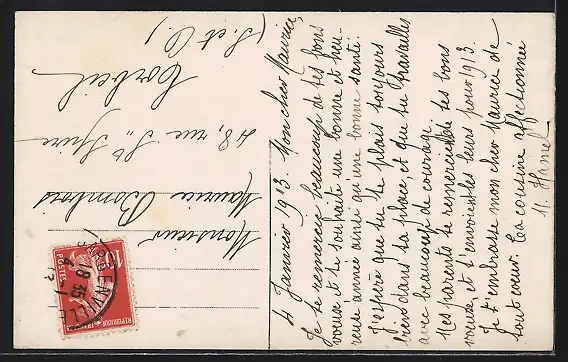 4 Janvier 1913. Mon cher Maurice,
Je te remercie beaucoup de tes bons
voeux et te souhaite une bonne et heu-
reuse année ainsi qu'une bonne santé.
J'espère que tu te plais toujours
bien dans ta place, et que tu travailles
avec beaucoup de courage.
Mes parents te remercient de tes bons
voeux et t'envoient les leurs pour 1913.
Je t'embrasse mon cher Maurice de
tout coeur. Ta cousine affectionnée
M. Hamel
Monsieur
Maurice Bombois
48, rue St Spire
Corbeil
(S. et O.)
10
POSTES
REPUBLIQUE FRANÇAISE
18 35
4 - 1
13